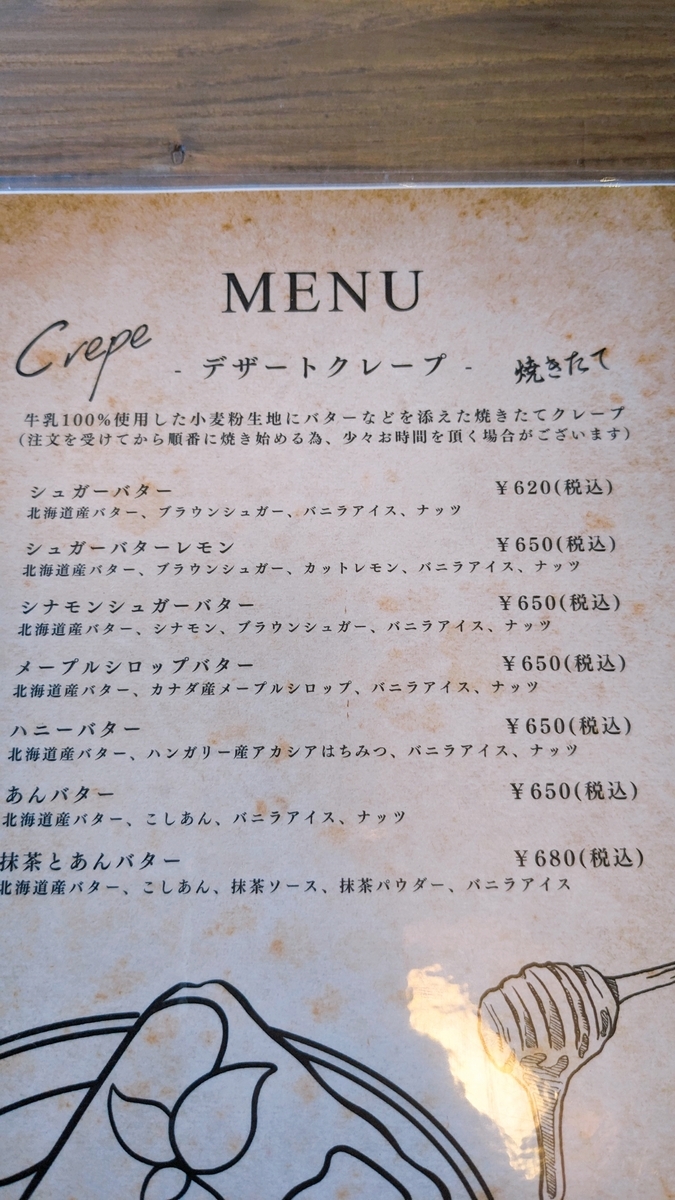 MENU
Crepe
- デザートクレープ -
焼きたて
牛乳100%使用した小麦粉生地にバターなどを添えた焼きたてクレープ
(注文を受けてから順番に焼き始める為、少々お時間を頂く場合がございます)
シュガーバター ¥620(税込)
北海道産バター、ブラウンシュガー、バニラアイス、ナッツ
シュガーバターレモン ¥650(税込)
北海道産バター、ブラウンシュガー、カットレモン、バニラアイス、ナッツ
シナモンシュガーバター ¥650(税込)
北海道産バター、シナモン、ブラウンシュガー、バニラアイス、ナッツ
メープルシロップバター ¥650(税込)
北海道産バター、カナダ産メープルシロップ、バニラアイス、ナッツ
ハニーバター ¥650(税込)
北海道産バター、ハンガリー産アカシアはちみつ、バニラアイス、ナッツ
あんバター ¥650(税込)
北海道産バター、こしあん、バニラアイス、ナッツ
抹茶とあんバター ¥680(税込)
北海道産バター、こしあん、抹茶ソース、抹茶パウダー、バニラアイス